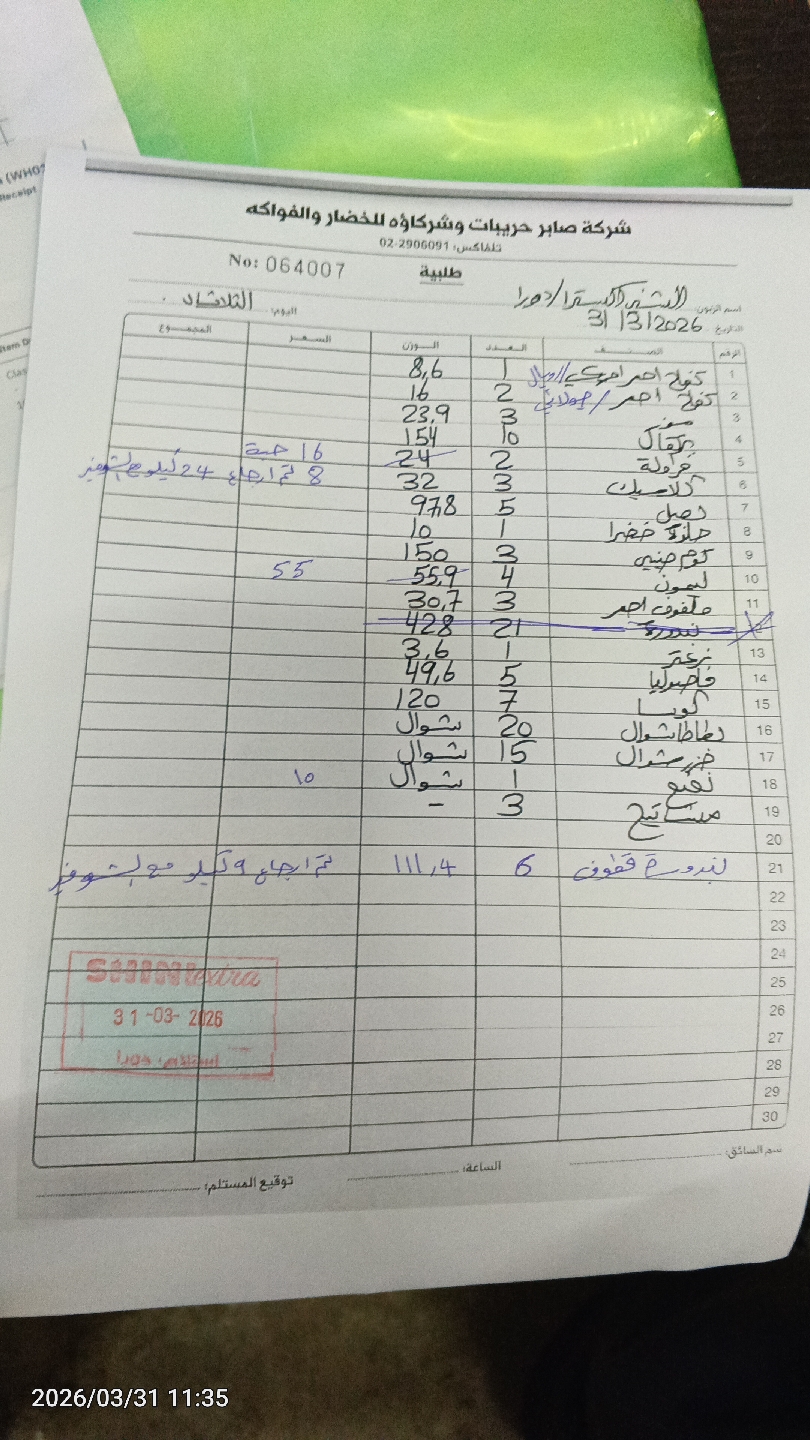 شركة صابر حريبات وشركاؤه للخضار والفواكه
تلفاكس: 02-2906091
No: 064007
طلبية
اسم الزبون: الشني اكسترا/دورا
اليوم: الثلاثاء
التاريخ: 31/3/2026
الرقم الصنف العدد الوزن السعر المجموع
1 تفاح احمر امريكي/ 1 8,6
2 تفاح احمر / 2 16
3 موز 3 23,9
4 برتقال 10 154
5 فراولة 2 24 16 حبة
6 كلاسيك 3 32 8 تم ارجاع 24 كيلو مع الشوفير
7 بصل 5 97,8
8 خضرا 1 10
9 3 150
10 ليمون 4 55,9 55
11 ملفوف احمر 3 30,7
12 بندورة 21 428
13 زعتر 1 3,6
14 فاصوليا 5 49,6
15 كوسا 7 120
16 بطاطا شوال 20 شوال
17 جزر شوال 15 شوال
18 1 شوال 10
19 مشاتيح 3 -
20
21 بندورة قطوف 6 111,4 تم ارجاع 9 كيلو مع الشوفير
22
23
24
25
26
27
28
29
30
SHINI extra
31-03-2026
استلام دورا
اسم السائق:
الساعة:
توقيع المستلم:
2026/03/31 11:35